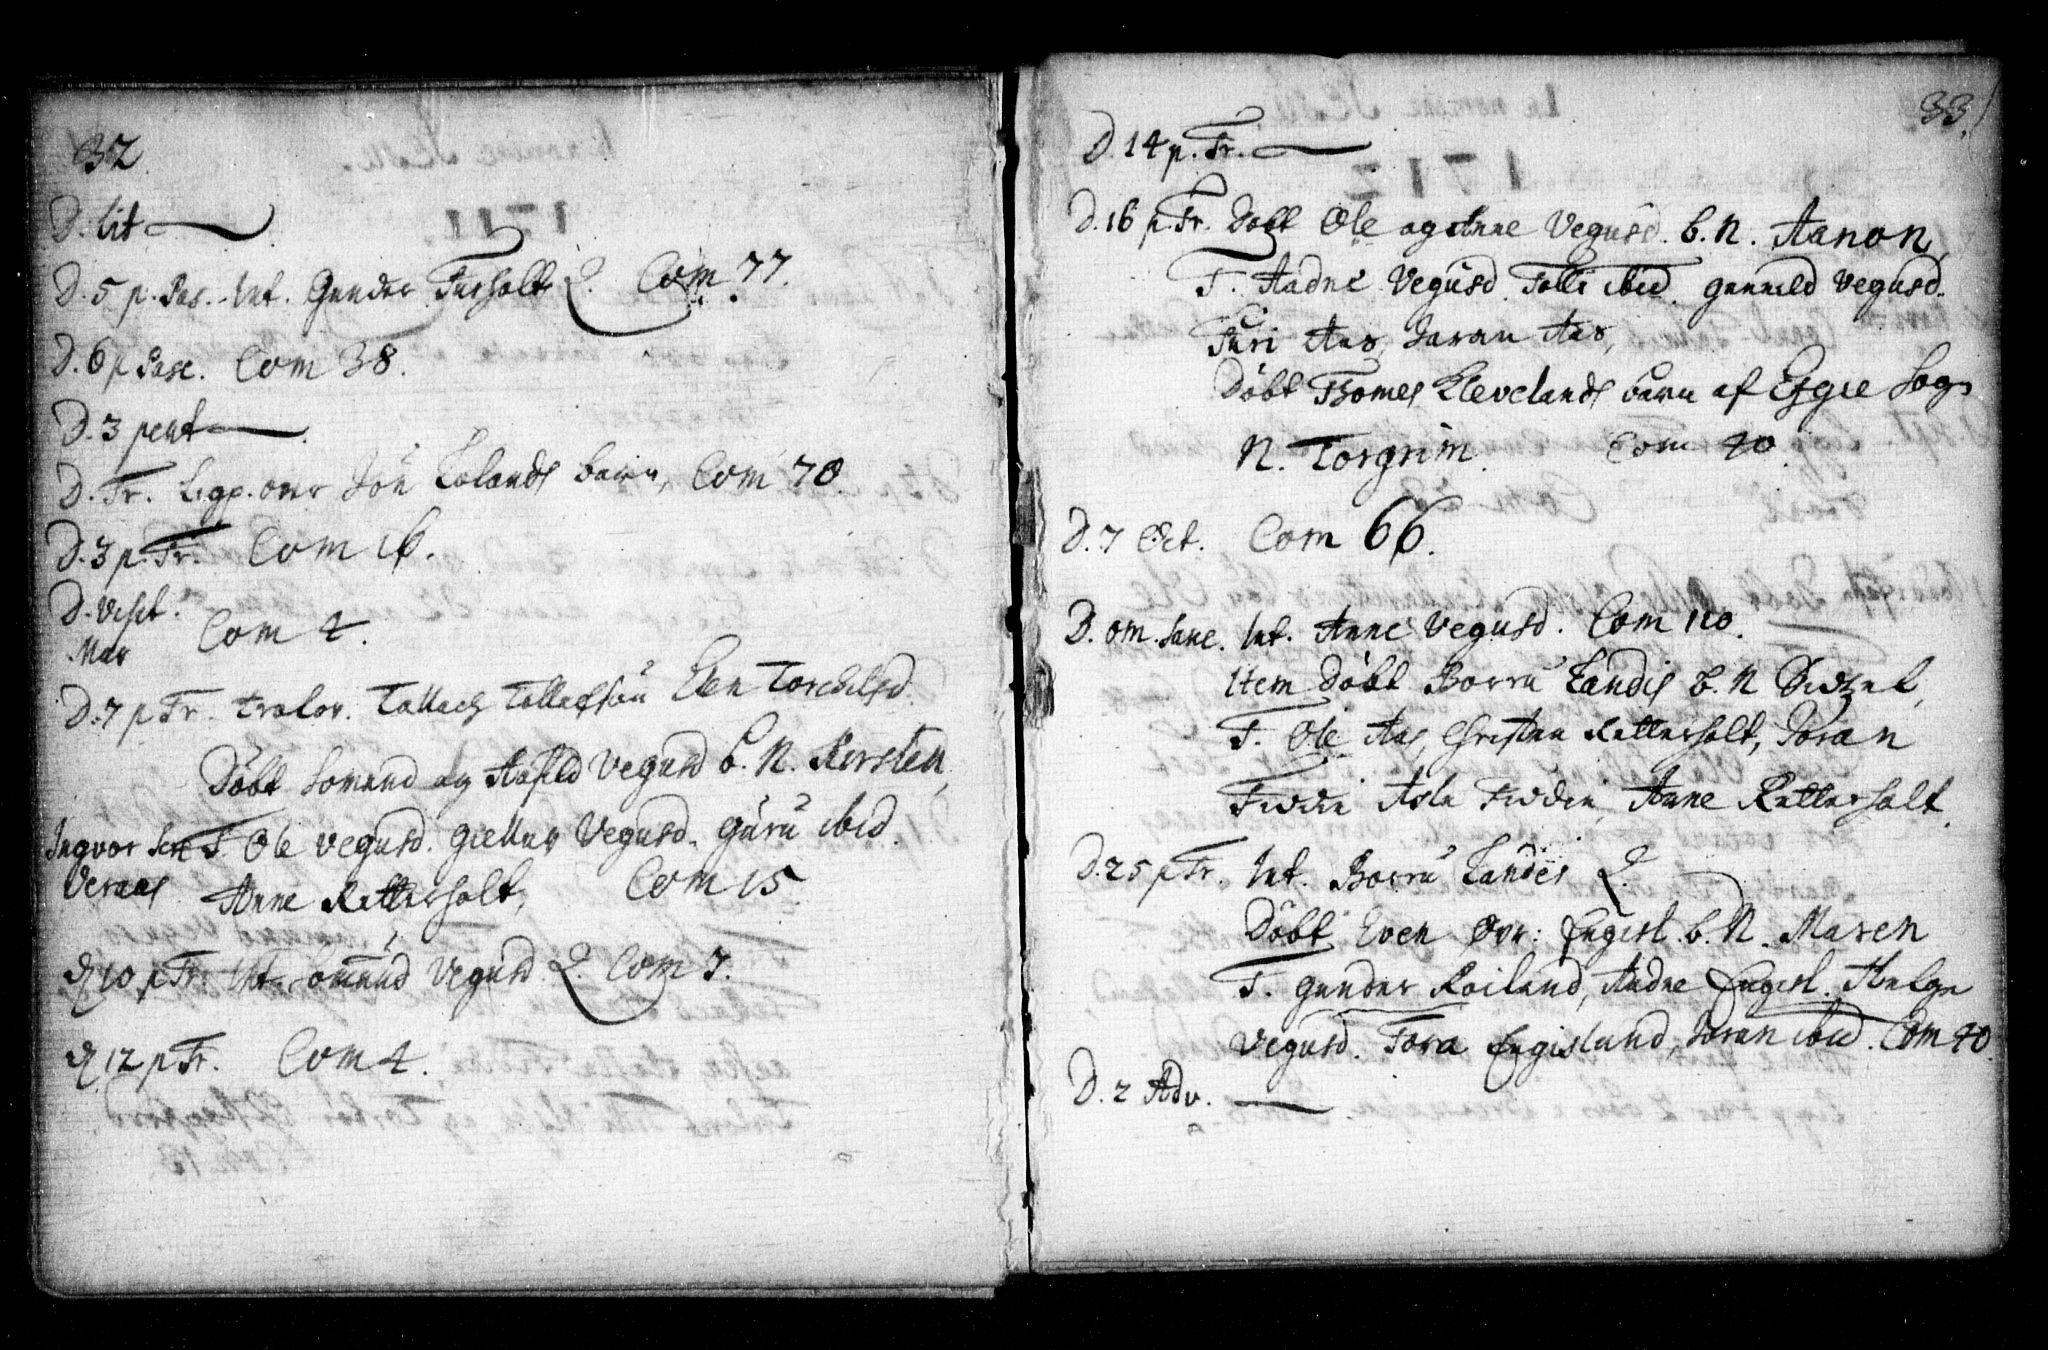 32.
D. lit
D. 5 p. Pas. Int. Gunder Furholt Q. Com 77.
D. 6 p Pasc. Com 38.
D. 3 pent
D. Tr. Ligp. over Jòn Tolands barn, Com 70.
D. 3 p. Tr. Com 16.
D. Visit.
Mar Com 4.
D. 7 p Tr. Trolov. Tallach Tallachsøn Elen Torchilsd.
Døbt Somund og Aasild Vegusd b. N. Kirsten,
Ingvor
F. Ole Vegusd. Giellur Vegusd. Guru ibid.
Veraas Anne Retterholt, Com 15.
D 10 p Tr. Int. Somund Vegusd Q. Com 7.
D 12 p Tr. Com 4.
33.
D. 14 p. Tr.
D. 16 p. Tr. Døbt Ole og Anne Vegusd. b. N. Aanon,
F. Aadne Vegusd. Folli ibid. Gunnild Vegusd.
Turi Aas, Joran Aas,
Døbt Thomes Klevelands barn af Hegie Sogn
N. Torgrim. Com 40.
D. 7 Oct. Com 66.
D. om. sanc. Int. Anne Vegusd. Com 110.
Item Døbt Borru Landis b. N Sidzel,
F. Ole Aas, Christen Retterholt, Joran
Fidie Asle Fidie, Anne Retterholt.
D. 25 p Tr. Int. Borru Landis Q.
Døbt Even Øvr: Engisl. b. N. Maren
F. Gunder Roiland, Aadne Engisl. Helge
Vegusd. Tora Engislund, Joran ibid. Com 40.
D. 2 Adv.